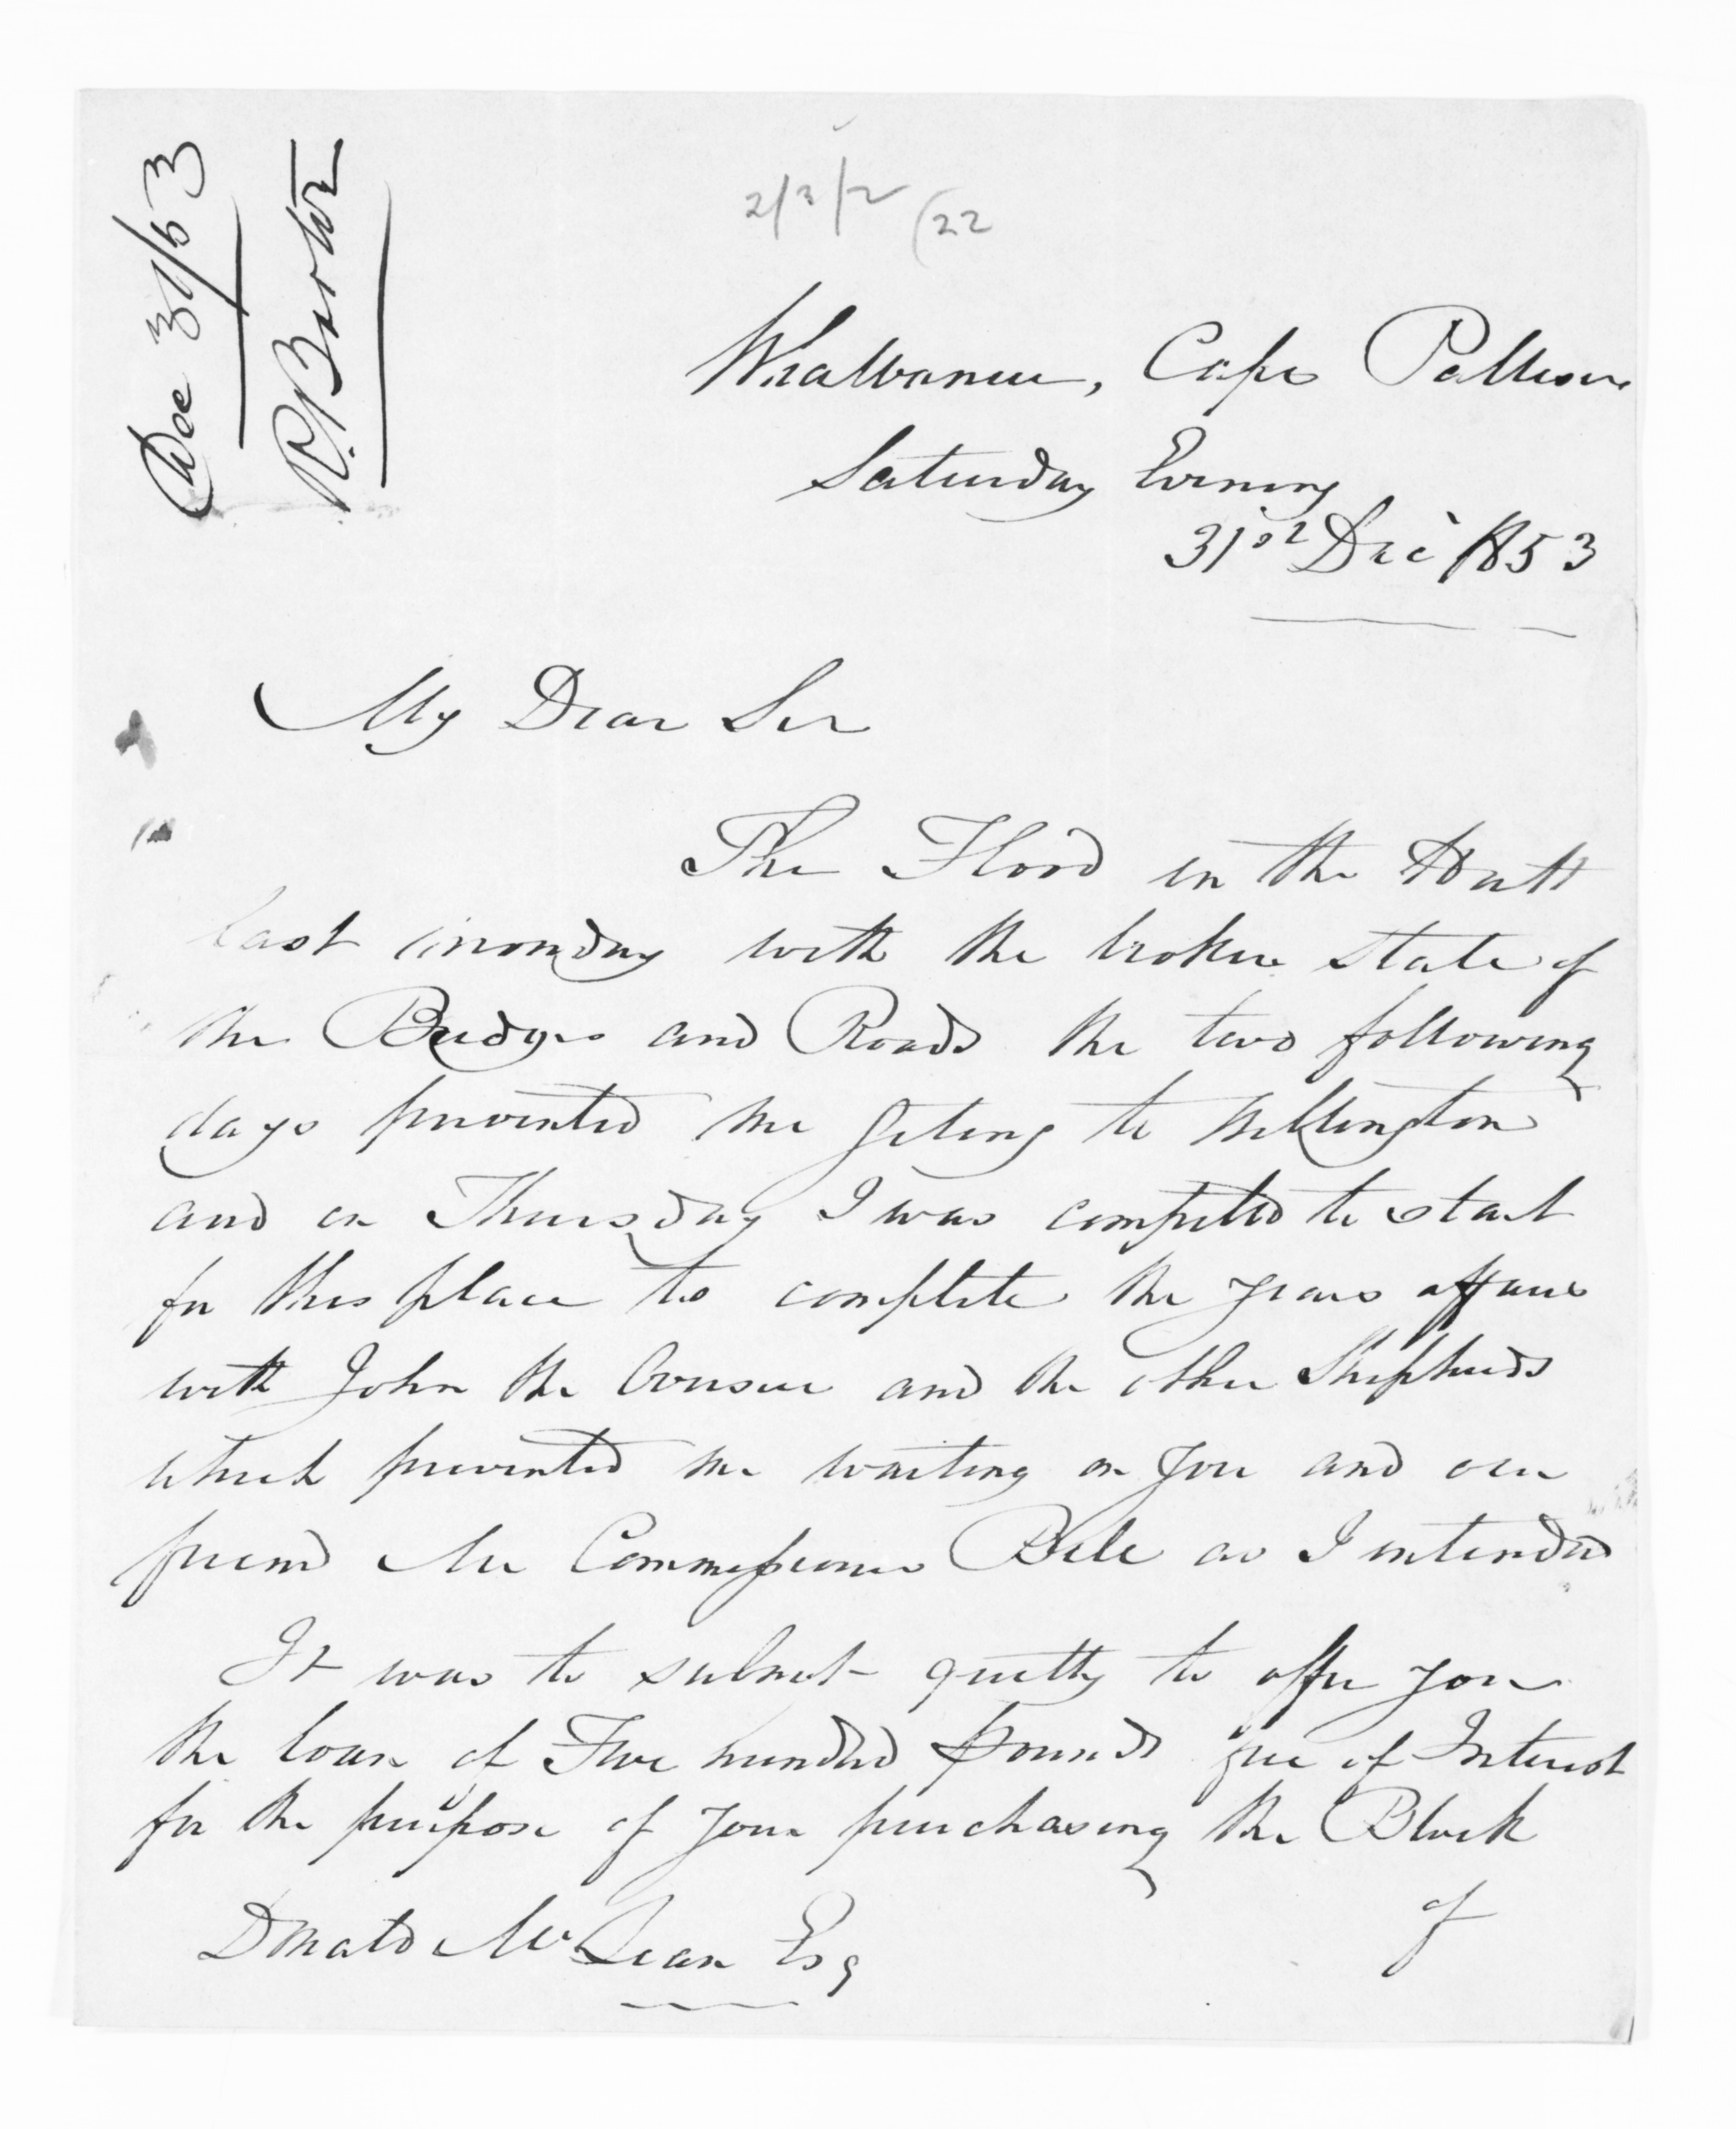 Dec 31/53
R. Barton
2/3/2 (22
Cape
Saturday Evening
31st Dec 1853
My Dear Sir
The Flood in the Hutt
last monday with the broken state of
the Bridges and Roads the two following
days prevented me geting to Wellington
and on Thursday I was compelled to start
for this place to complete the years affairs
with John the and the other Shepherds
which prevented me waiting on you and our
friend Mr Commissioner Bell as I intended
It was to submit quietly to offer you
the loan of Five hundred pounds free of Interest
for the purpose of your purchasing the Block
of
Donald McLean Esq